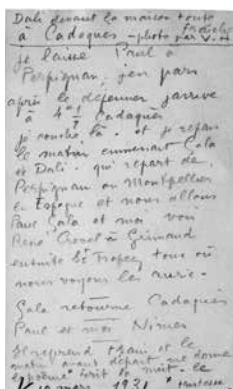 Dali devant la maison toute
fraiche
à Cadaques - photo par V. H
je laisse Paul à
Perpignan, j'en pars
après le déjeuner j'arrive
à 4h ½ Cadaques
je couche là. et je repars
le matin emmenant Gala
et Dali. qui repart de
Perpignan ou Montpellier
en Espagne et nous allons
Paul Gala et moi voir
René Crevel à Grimaud
ensuite St Tropez tous où
nous voyons les
Gala retourne Cadaques
Paul et moi Nimes
Il reprend train et le
matin avant départ me donne
poème écrit la nuit. le
mars 1931